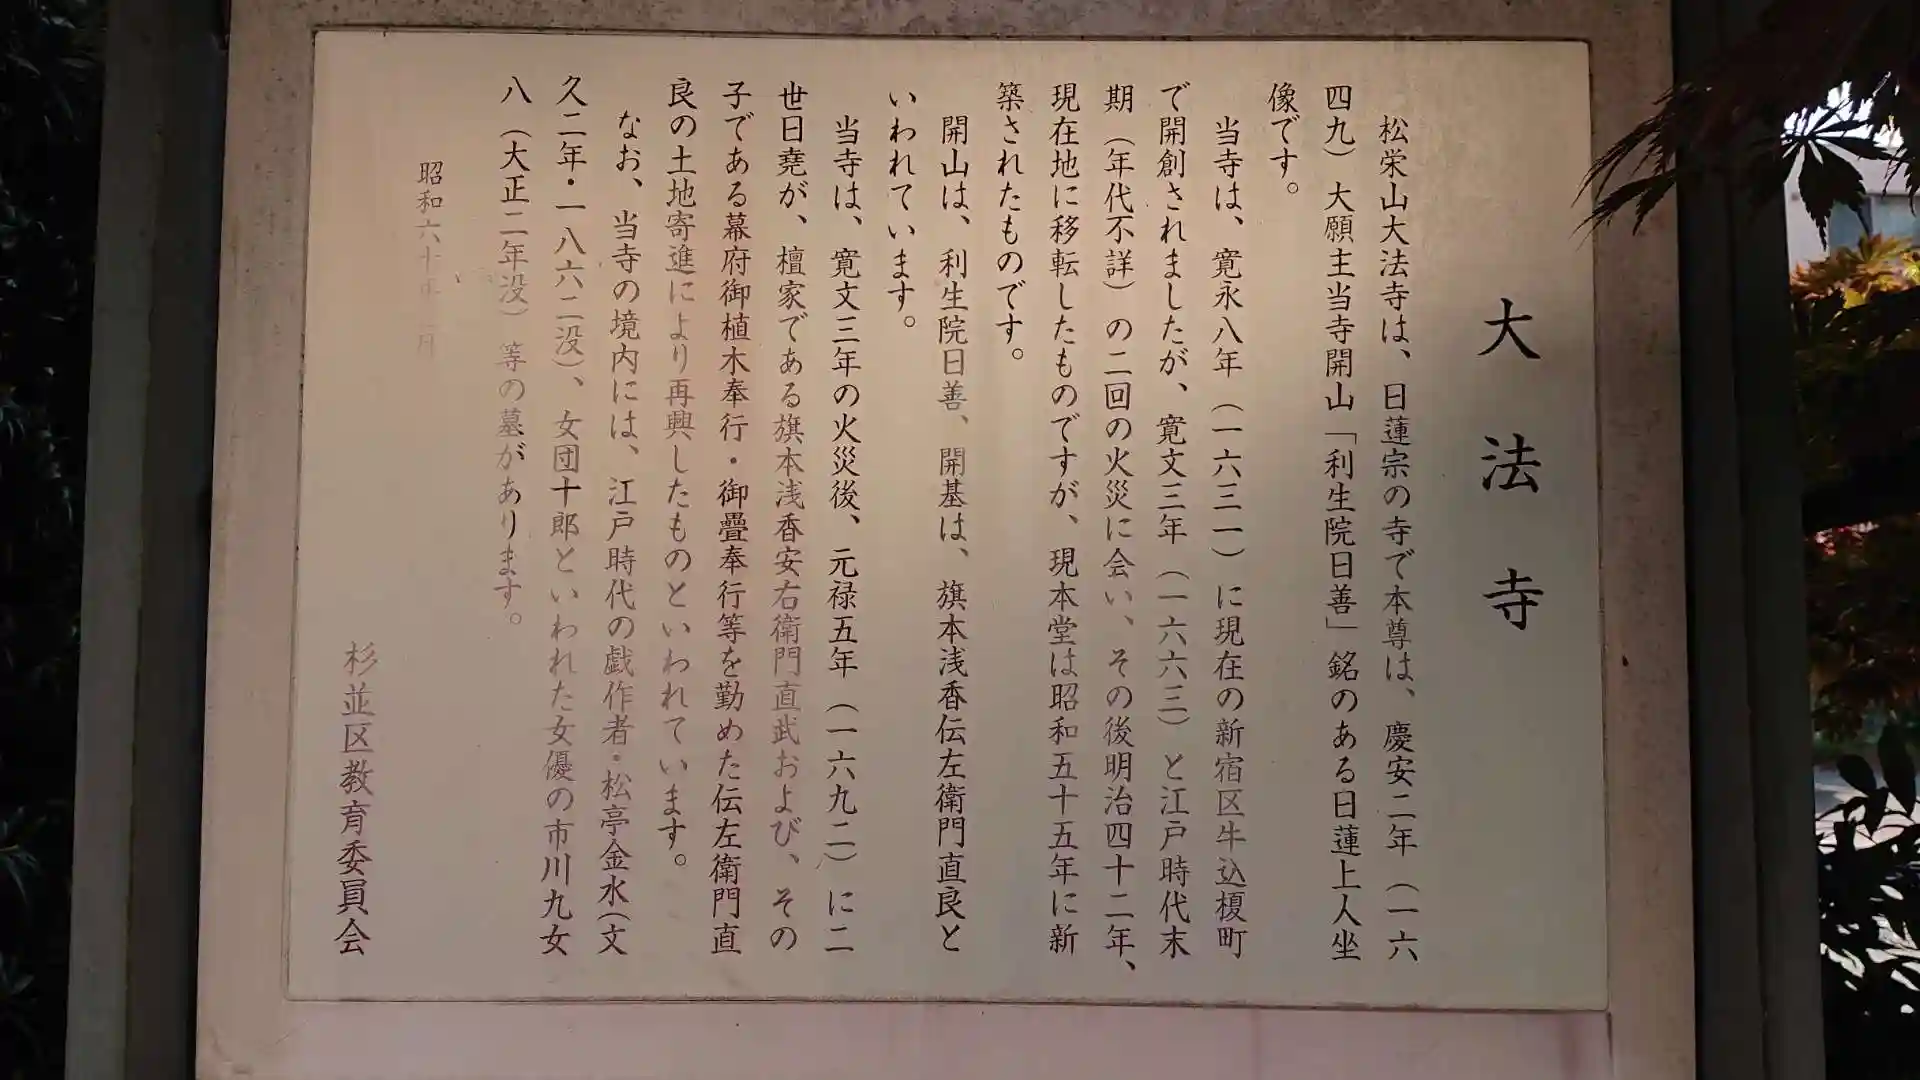 大法寺
松栄山大法寺は、日蓮宗の寺で本尊は、慶安二年（一六
四九）大願主当寺開山「利生院日善」銘のある日蓮上人坐
像です。
当寺は、寛永八年（一六三一）に現在の新宿区牛込榎町
で開創されましたが、寛文三年（一六六三）と江戸時代末
期（年代不詳）の二回の火災に会い、その後明治四十二年、
現在地に移転したものですが、現本堂は昭和五十五年に新
築されたものです。
開山は、利生院日善、開基は、旗本浅香伝左衛門直良と
いわれています。
当寺は、寛文三年の火災後、元禄五年（一六九二）に二
世日堯が、檀家である旗本浅香安右衛門直武および、その
子である幕府御植木奉行・御疊奉行等を勤めた伝左衛門直
良の土地寄進により再興したものといわれています。
なお、当寺の境内には、江戸時代の戯作者・松亭金水（文
久二年・一八六二没）、女団十郎といわれた女優の市川九女
八（大正二年没）等の墓があります。
昭和六十年 月
杉並区教育委員会